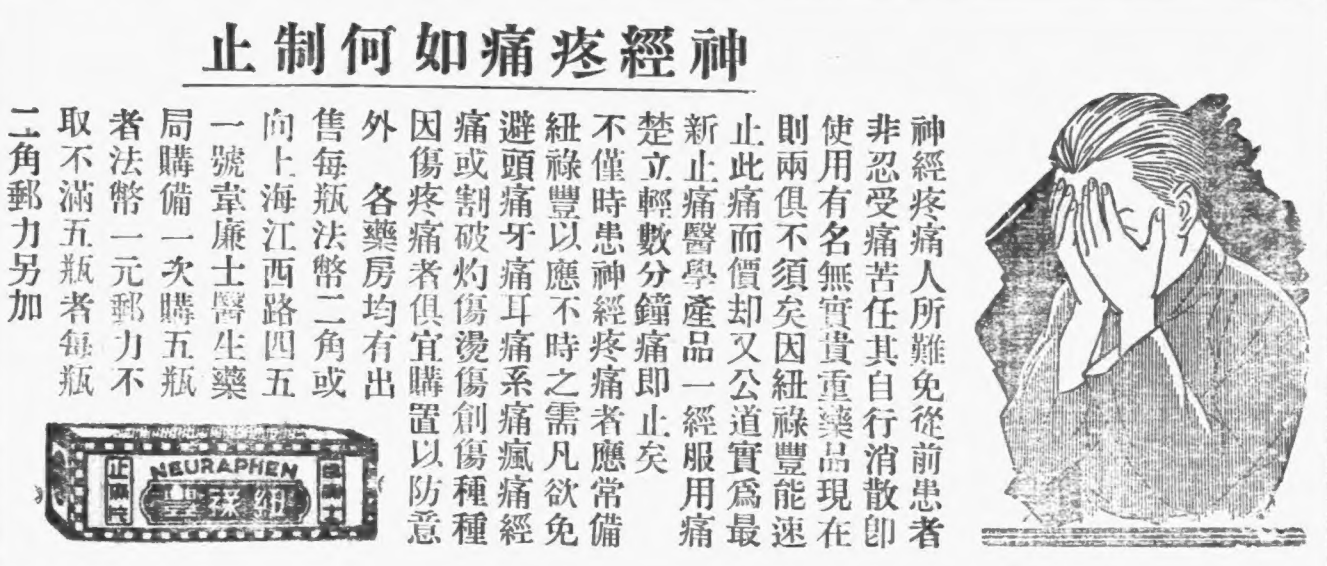 神經疼痛如何制止
神經疼痛人所難免從前患者
非忍受痛苦任其自行消散卽
使用有名無實貴重藥品現在
則兩俱不須矣因紐祿豐能速
止此痛而價却又公道實爲最
新止痛醫學產品一經服用痛
楚立輕數分鐘痛即止矣
不僅時患神經疼痛者應常備
紐祿豐以應不時之需凡欲免
避頭痛牙痛耳痛系痛瘋痛經
痛或割破灼傷燙傷創傷種種
因傷疼痛者俱宜購置以防意
外　各藥房均有出
售每瓶法幣二角或
向上海江西路四五
一號韋廉士醫生藥
局購備一次購五瓶
者法幣一元郵力不
取不滿五瓶者每瓶
二角郵力另加
NEURAPHEN
紐祿豐
止痛片